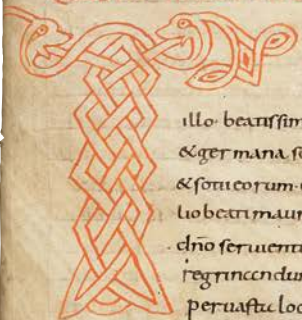 illo· beatissim
& germana. s
& sotii eorum·
lio beati maur
· dn̄o seruienti
regrinandu
peruastu loc